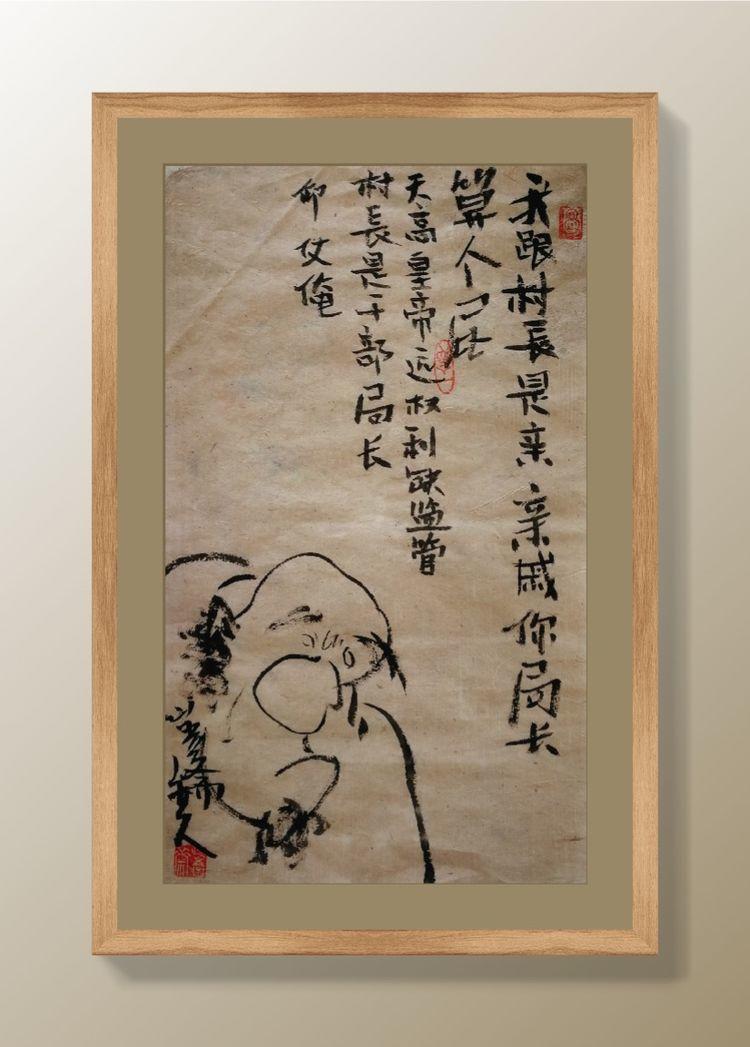 我跟村長是亲亲戚你局长
算个屁
天高皇帝远权利缺监管
村長是干部局长
仰仗俺